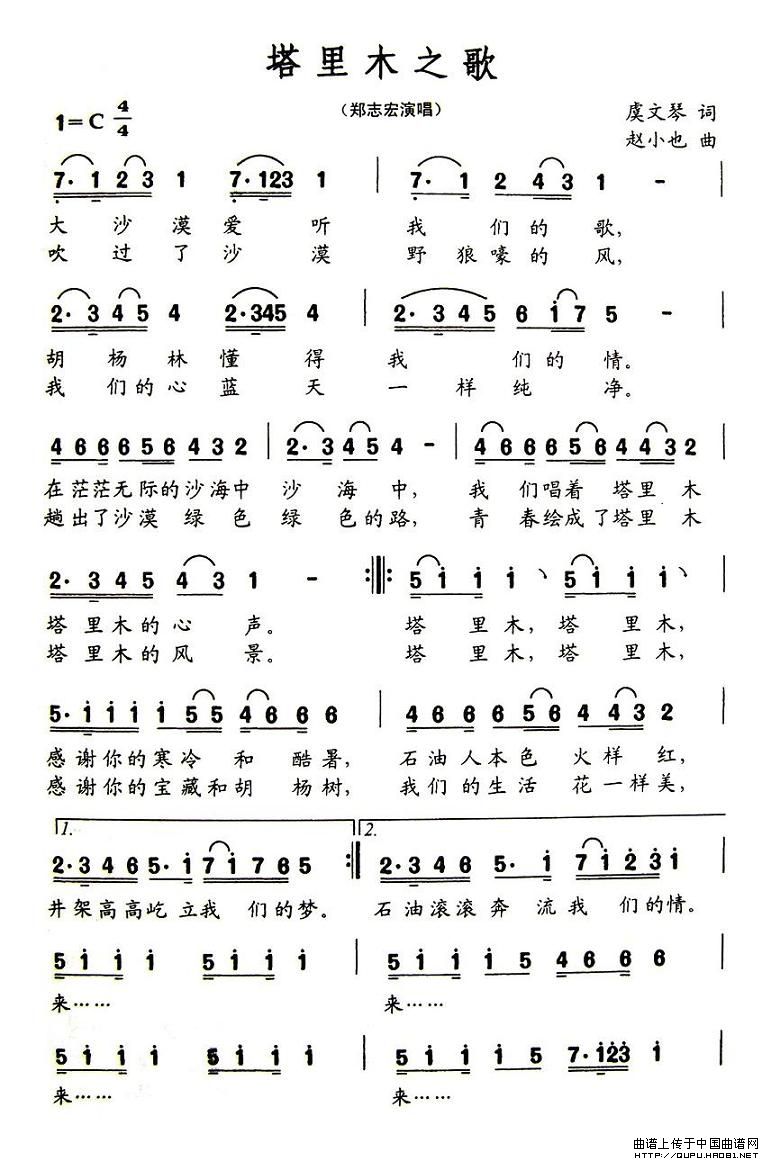 塔里木之歌
（郑志宏演唱）
1=C 4/4
虞文琴 词
赵小也 曲
7· 1 2 3 1 7·123 1 | 7· 1 2 4 3 1 - |
大沙漠爱听 我们的歌，
吹过了沙漠 野狼嚎的风，
2· 3 4 5 4 2·345 4 | 2· 3 4 5 6 i 7 5 - |
胡杨林懂得 我们的情。
我们的心蓝天 一样纯净。
4 6 6 6 5 6 4 3 2 | 2· 3 4 5 4 - | 4 6 6 6 5 6 4 4 3 2 |
在茫茫无际的沙海中 沙海中， 我们唱着塔里木
趟出了沙漠绿色绿色的路， 青春绘成了塔里木
2· 3 4 5 4 3 1 - :‖: 5 i i i 、 5 i i i 、 |
塔里木的心声。 塔里木，塔里木，
塔里木的风景。 塔里木，塔里木，
5· i i i i 5 5 4 6 6 6 | 4 6 6 6 5 6 4 4 3 2 |
感谢你的寒冷和酷暑， 石油人本色火样红，
感谢你的宝藏和胡杨树， 我们的生活花一样美，
1. 2.
2·3 4 6 5· i 7 i 7 6 5 :‖ 2·3 4 6 5· i 7 i 2 3 i |
井架高高屹立我们的梦。 石油滚滚奔流我们的情。
5 i i i 5 i i i | 5 i i i 5 4 6 6 6 |
来…… 来……
5 i i i 5 i i i | 5 i i i 5 7·i23 i |
来…… 来……
曲谱上传于中国曲谱网
HTTP://QUPU.HAO81.NET